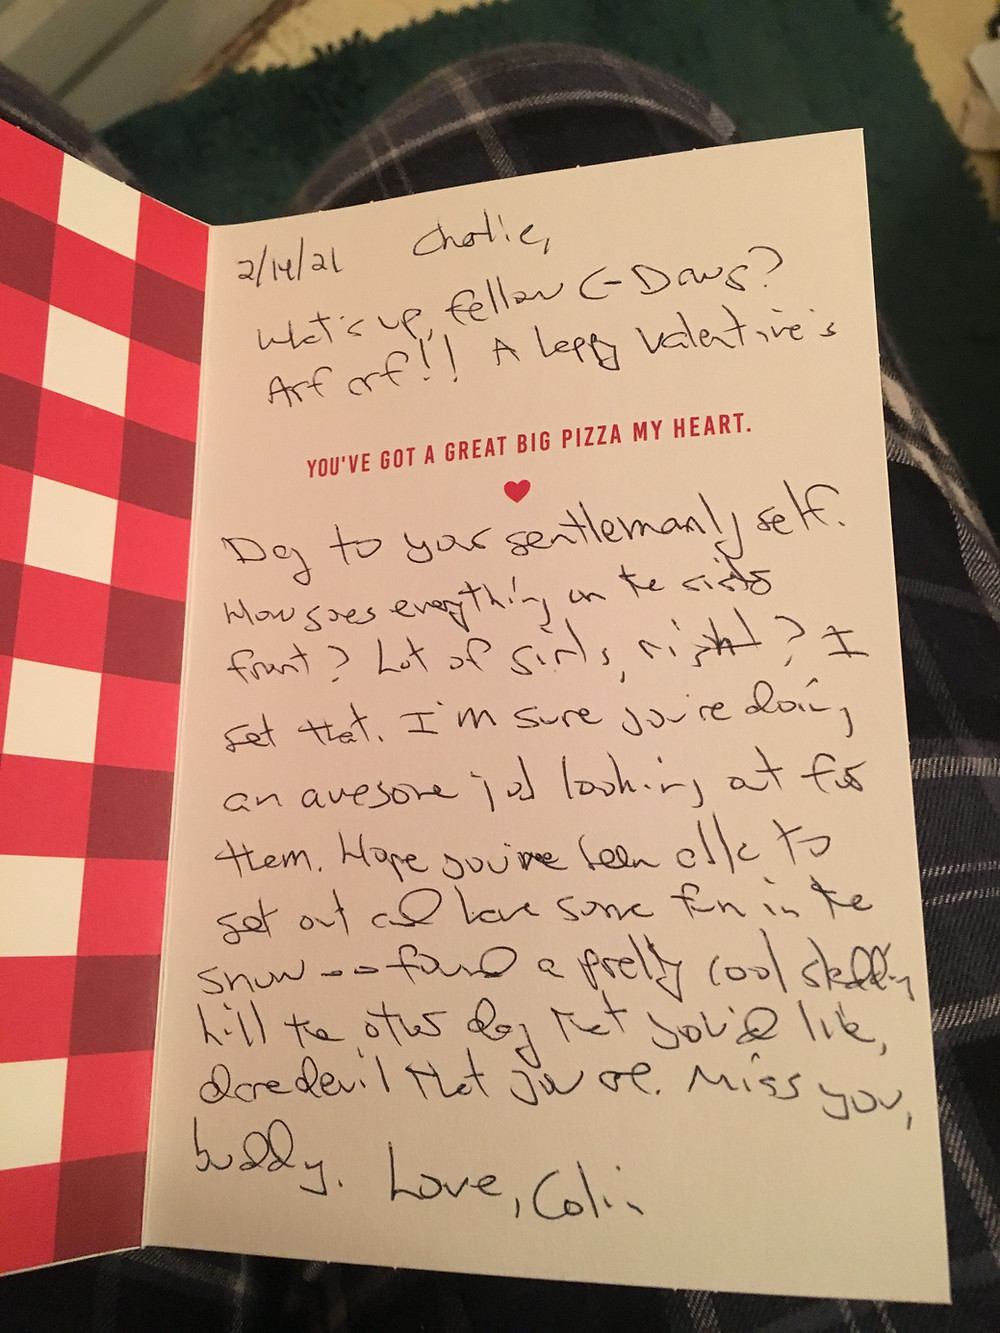 2/14/21 Charlie,
What's up, fellow C-Dawg?
Arf arf!! A happy Valentine's
YOU'VE GOT A GREAT BIG PIZZA MY HEART.
Day to your gentlemanly self.
How goes everything on the sisters
front? Lot of girls, right? I
get that. I'm sure you're doing
an awesome job looking out for
them. Hope you've been able to
get out and have some fun in the
snow -- found a pretty cool sledding
hill the other day that you'd like,
daredevil that you are. Miss you,
buddy. Love, Colin